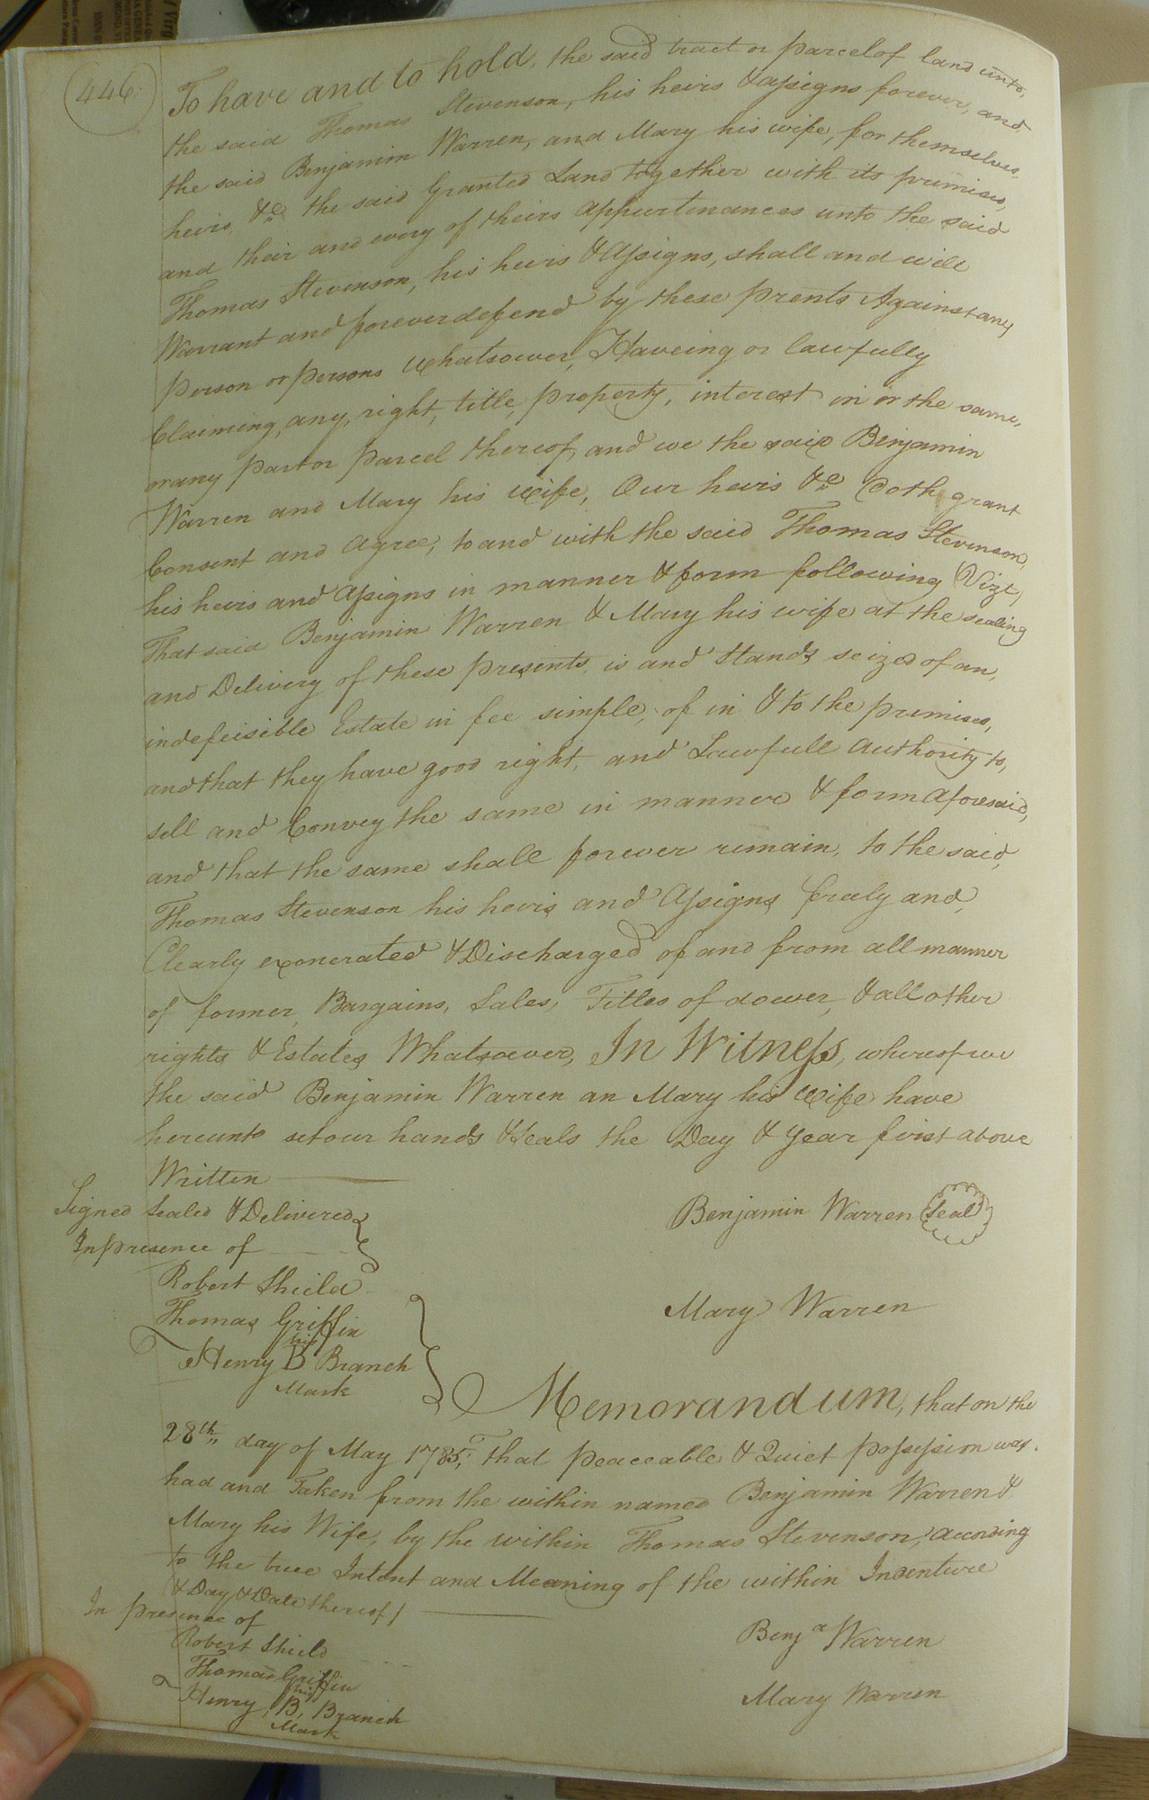 446
To have and to hold, the said tract or parcel of land unto,
the said Thomas Stevenson, his heirs & assigns forever, and
the said Benjamin Warren, and Mary his wife, for themselves,
heirs &c the said Granted Land together with its premises,
and their and every of theirs appurtenances unto the said
Thomas Stevenson, his heirs & Assigns, shall and will
Warrant and forever defend by these prents Against any
person or persons whatsoever, Haveing or lawfully
Claiming, any, right, title, property, interest in or the same,
or any part or parcel thereof, and we the said Benjamin
Warren and Mary his wife, Our heirs &c Doth grant
Consent and agree, to and with the said Thomas Stevenson,
his heirs and assigns in manner & form following (Vizt,
That said Benjamin Warren & Mary his wife at the sealing
and Delivery of these presents is and Stands seized of an,
indefeisible Estate in fee simple, of in & to the premises,
and that they have good right, and Lawfull authority to,
sell and Convey the same in manner & form aforesaid,
and that the same shall forever remain, to the said,
Thomas Stevenson his heirs and Assigns freely and,
Clearly exonerated & Discharged of and from all manner
of former, Bargains, Sales, Titles of dower, & all other
rights & Estates Whatsoever, In Witness, whereof we
the said Benjamin Warren an Mary his Wife have
hereunto set our hands & Seals the Day & year first above
Written
Signed Sealed & Delivered
In presence of
Benjamin Warren Seal
Robert Shield
Thomas Griffin
Mary Warren
his
Henry B Branch
Mark
Memorandum, that on the
28th day of May 1785, That peaceable & Quiet possession was
had and Taken from the within named Benjamin Warren &
Mary his Wife, by the within Thomas Stevenson, according
to the true Intent and Meaning of the within Indenture
& Day & Date thereof
In presence of
Benja Warren
Robert Shield
Thomas Griffin
Mary Warren
his
Henry B, Branch
Mark